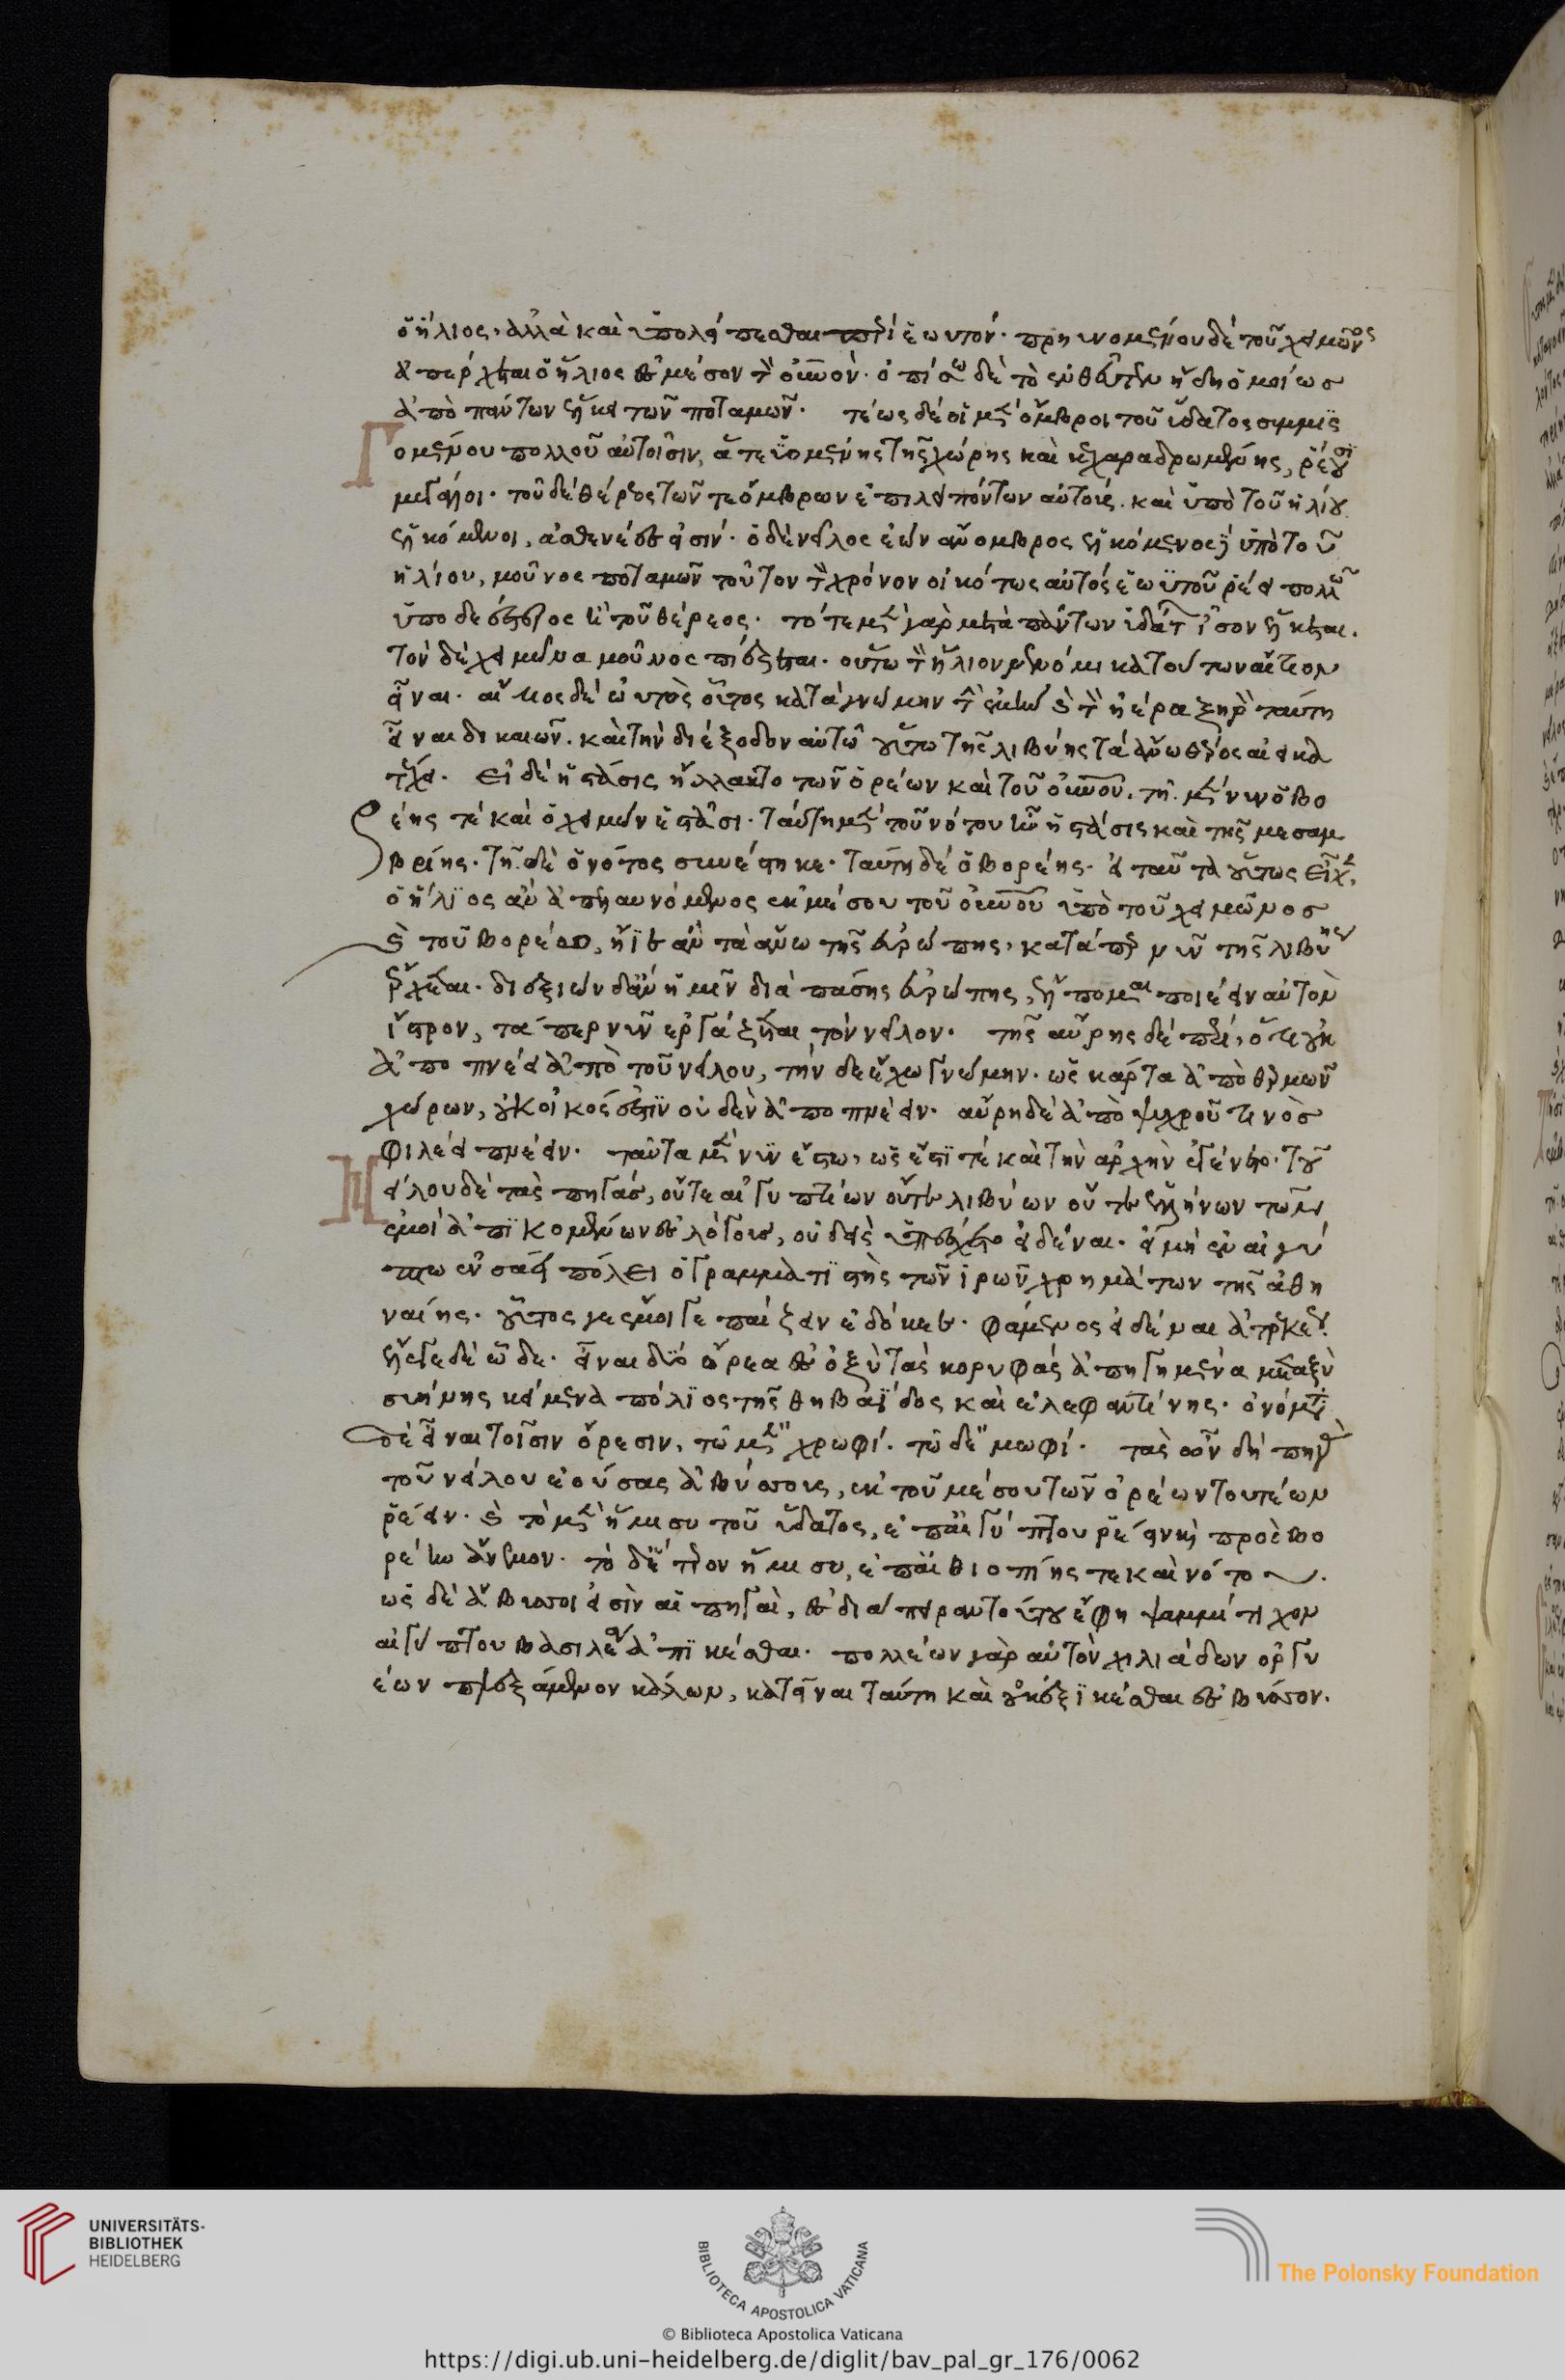 ὁ ἥλιος. ἀλλὰ καὶ ὑπολείπεσθαι περὶ ἑωυτόν. πρηυνομένου δὲ τοῦ χειμῶνος
ἀπέρχεται ὁ ἥλιος ἐς μέσον τὸν οὐρανόν. ὀπίσω δὲ τὸ ἐνθεῦτεν ἤδη ὁμοίως
ἀπὸ πάντων ἕλκει τῶν ποταμῶν. τέως δὲ οἱ μὲν ὄμβροι τοῦ ὕδατος συμμισ
γομένου πολλοῦ αὐτοῖσιν, ἅτε ὑομένης τῆς χώρης καὶ κεχαραδρωμένης, ῥέουσι
μεγάλοι. τοῦ δὲ θέρεος τῶν τε ὄμβρων ἐπιλειπόντων αὐτοὺς. καὶ ὑπὸ τοῦ ἡλίου
ἑλκόμενοι, ἀσθενέες εἰσίν. ὁ δὲ νεῖλος ἐὼν ἄνομβρος ἑλκόμενος δὲ ὑπὸ τοῦ
ἡλίου, μοῦνος ποταμῶν τοῦτον τὸν χρόνον οἰκότως αὐτὸς ἑωϋτοῦ ῥέει πολλῶ
ὑποδεέστερος ἢ τοῦ θέρεος. τότε μὲν γὰρ μετὰ πάντων ὑδάτων ἴσον ἕλκεται.
τὸν δὲ χειμῶνα μοῦνος πιέζεται. οὕτω τὸν ἥλιον νενόμικα τούτων αἴτιον
εἶναι. αἴτιος δὲ ωὑτὸς οὗτος κατὰ γνώμην τὴν ἐμὴν καὶ τὸν ἠέρα ξηρὸν ταύτη
εἶναι δικαιῶν. καὶ τὴν διέξοδον αὐτῶ οὕτω τῆς λιβύης τὰ ἄνω θέρος αἰεὶ κα
τέχει. εἰ δὲ ἡ στάσις ἤλλακτο τῶν ὡρέων καὶ τοῦ οὐρανοῦ. τῆ μὲν νῦν ὁ βο
ρέης τε καὶ ὁ χειμὼν ἑστᾶσι. ταύτη μὲν τοῦ νότου ἦν ἡ στάσις καὶ τῆς μεσαμ
βρίης. τῆ δὲ ὁ νότος συνέστηκε. ταύτη δὲ ὁ βορέης. εἰ ταῦτα οὕτως εἶχε.
ὁ ἥλιος ἂν ἀπελαυνόμενος ἐκ μέσου τοῦ οὐρανοῦ ὑπὸ τοῦ χειμῶνος
καὶ τοῦ βορέου, ἤϊε ἂν τὰ ἄνω τῆς εὐρώπης. κατάπερ νῦν τῆς λιβύης
ἔρχεται. διεξιὼν δ' ἂν ἡμῖν διὰ πάσης εὐρώπης, ἔλπομαι ποιέειν αὐτὸν
ἴστρον, τάπερ νῦν ἐργάζεται τὸν νεῖλον. τῆς αὔρης δὲ πέρι, ὅτι οὐκ
ἀποπνέει ἀπὸ τοῦ νείλου, τήνδε ἔχω γνώμην. ὡς κάρτα ἀπὸ θερμῶν
χώρων, οὐκ οἰκός ἐστιν οὐδὲν ἀποπνέειν. αὔρη δὲ ἀπὸ ψυχροῦ τινὸς
φιλέει πνέειν. ταῦτα μὲν νῦν ἔστω, ὡς ἔστι τὲ καὶ τὴν ἀρχὴν ἐγένετο. τοῦ
νείλου δὲ τὰς πηγάς, οὔτε αἰγυπτίων οὔτε λιβύων οὔτε ἑλλήνων τῶν
ἐμοὶ ἀπικομένων ἐς λόγους, οὐδεὶς ὑπέσχετο εἰδέναι. εἰ μὴ ἐν αἰγύ
πτω ἐν σάει πόλει ὁ γραμματιστὴς τῶν ἱρῶν χρημάτων τῆς ἀθη
ναίης. οὗτος με ἔμοιγε παίξειν ἐδόκεε. φάμενος εἰδέναι ἀτρεκέως.
ἔλεγε δὲ ὧδε. εἶναι δύο οὔρεα ἐς ὀξὺ τὰς κορυφὰς ἀπηγμένα μεταξὺ
συήνης κείμενα πόλιος τῆς θηβαΐδος καὶ ἐλεφαντίνης. ὀνόματα
δὲ εἶναι τοῖσιν οὔρεσιν, τῶ μὲν χρωφί. τῶ δὲ μωφί. τὰς ὦν δὴ πηγὰς
τοῦ νείλου ἐούσας ἀβύσσους, ἐκ τοῦ μέσου τῶν ὀρέων τουτέων
ῥέειν. καὶ τὸ μὲν ἥμισυ τοῦ ὕδατος, ἐπ' αἰγύπτου ῥέειν καὶ πρὸς βο
ρέην ἄνεμον. τὸ δ' ἕτερον ἥμισυ, ἐπ' αἰθιοπίης τε καὶ νότου.
ὡς δὲ ἄβυσσοι εἰσὶν αἱ πηγαὶ, ἐς διάπειραν τούτου ἔφη ψαμμίτιχον
αἰγύπτου βασιλέα ἀπικέσθαι. πολλέων γὰρ αὐτὸν χιλιάδων ὀργυ
έων πλεξάμενον κάλων, κατεῖναι ταύτη καὶ οὐκ ἐξικέσθαι ἐς βυσσόν.
UNIVERSITÄTS-
BIBLIOTHEK
HEIDELBERG
BIBLIOTECA APOSTOLICA VATICANA
© Biblioteca Apostolica Vaticana
The Polonsky Foundation
https://digi.ub.uni-heidelberg.de/diglit/bav_pal_gr_176/0062